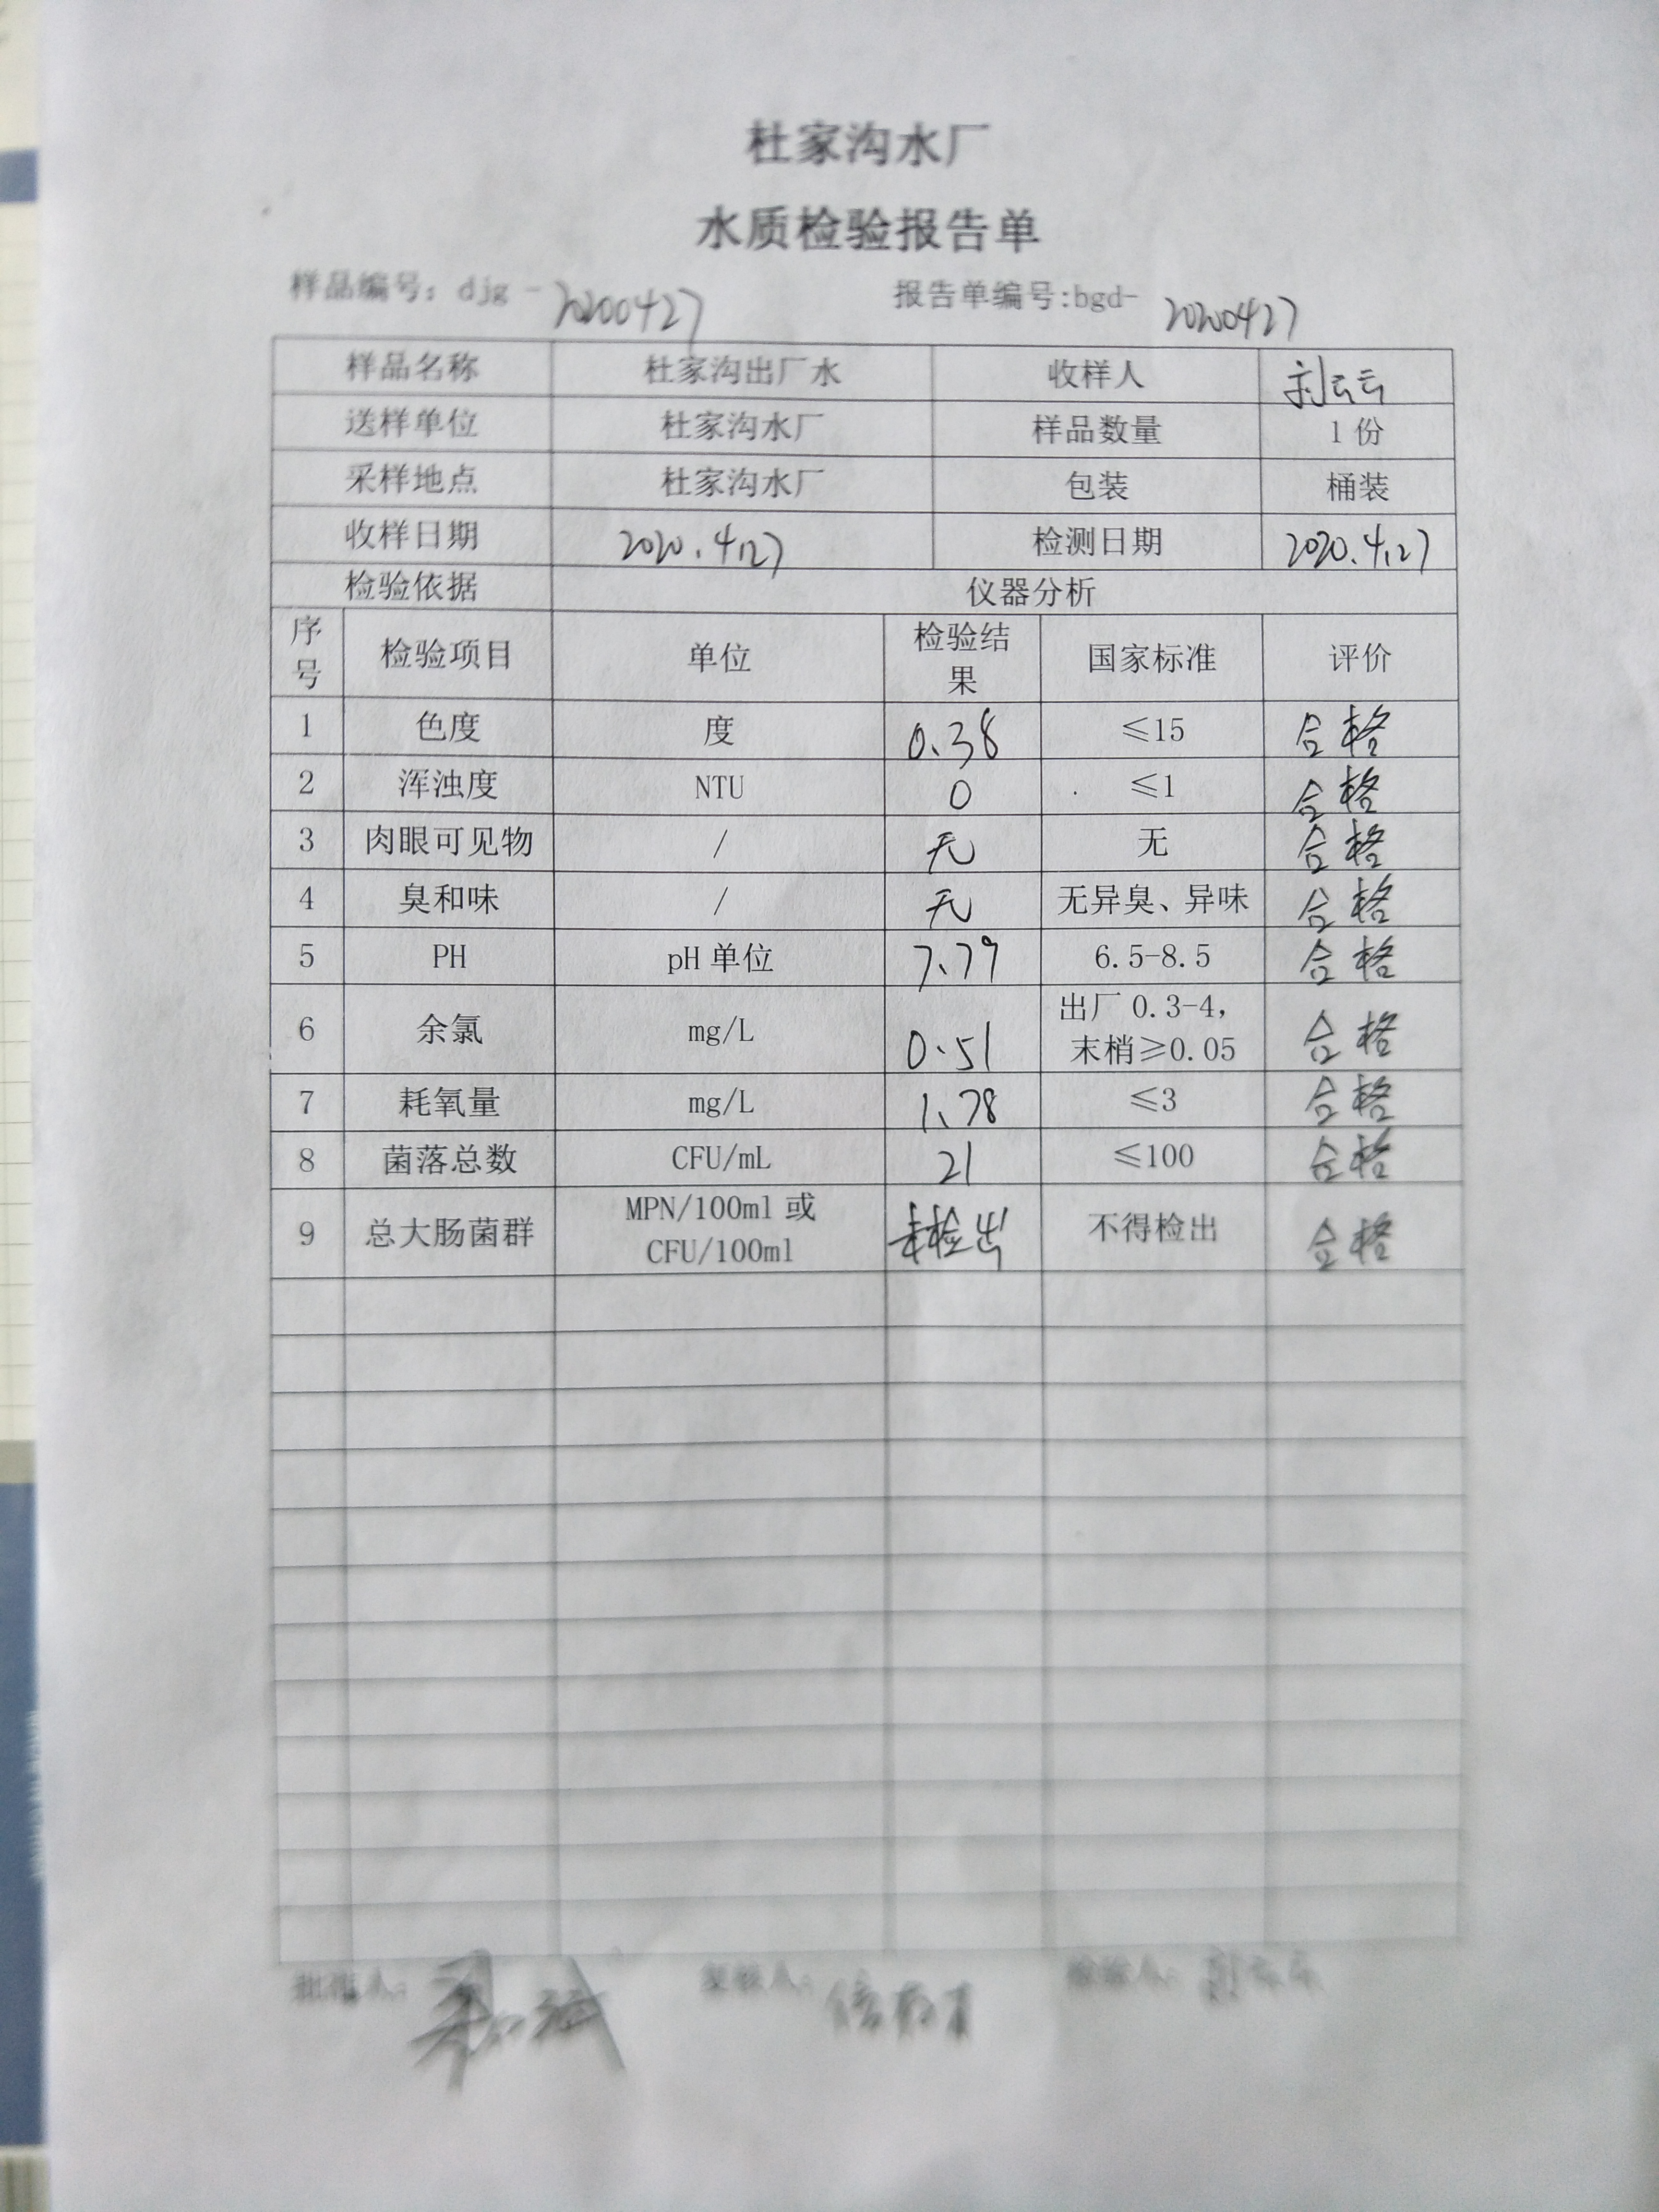 杜家沟水厂
水质检验报告单
样品编号：djg-20200427 报告单编号:bgd-20200427
样品名称 杜家沟出厂水 收样人 刘云云
送样单位 杜家沟水厂 样品数量 1份
采样地点 杜家沟水厂 包装 桶装
收样日期 2020.4.27 检测日期 2020.4.27
检验依据 仪器分析
序号 检验项目 单位 检验结果 国家标准 评价
1 色度 度 0.38 ≤15 合格
2 浑浊度 NTU 0 ≤1 合格
3 肉眼可见物 / 无 无 合格
4 臭和味 / 无 无异臭、异味 合格
5 PH pH单位 7.79 6.5-8.5 合格
6 余氯 mg/L 0.51 出厂0.3-4，末梢≥0.05 合格
7 耗氧量 mg/L 1.78 ≤3 合格
8 菌落总数 CFU/mL 21 ≤100 合格
9 总大肠菌群 MPN/100ml或CFU/100ml 未检出 不得检出 合格
批准人： 复核人： 检验人：刘云云